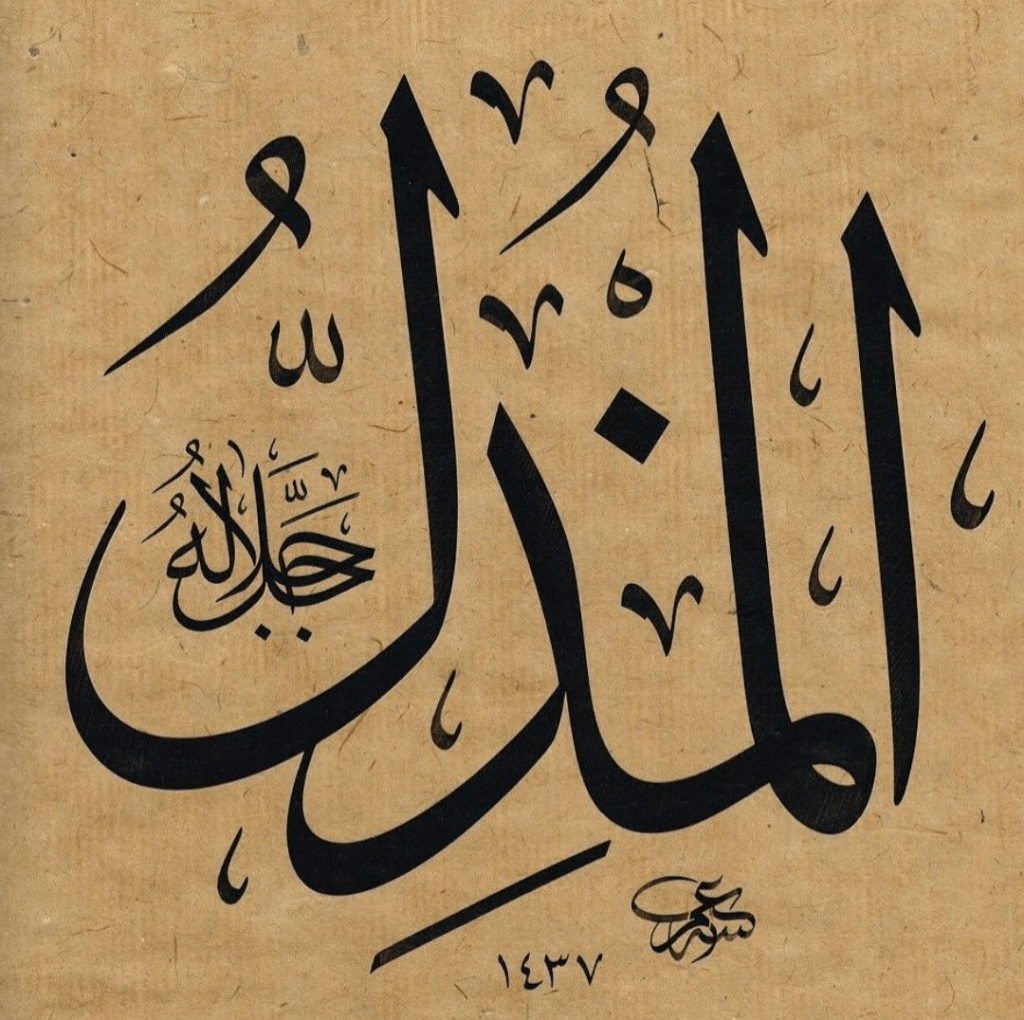 المُذِلُّ
جَلَّ جَلَالُهُ
١٤٣٧